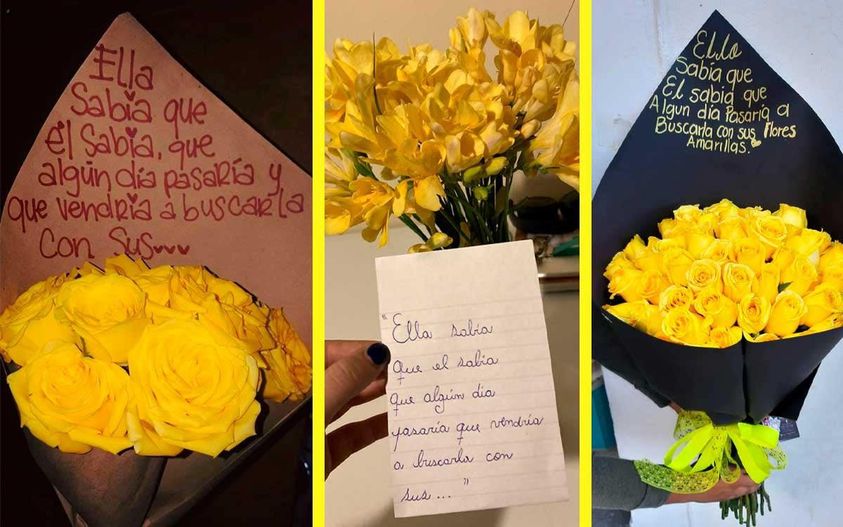 Ella
Sabia que
Él Sabia, que
algún día pasaría y
que vendria a buscarla
con Sus
"Ella sabia
que el sabia
que algún dia
pasaría que vendría
a buscarla con
sus... "
Ella
Sabia que
El sabia que
Algun dia Pasaria a
Buscarla con sus flores
Amarillas.